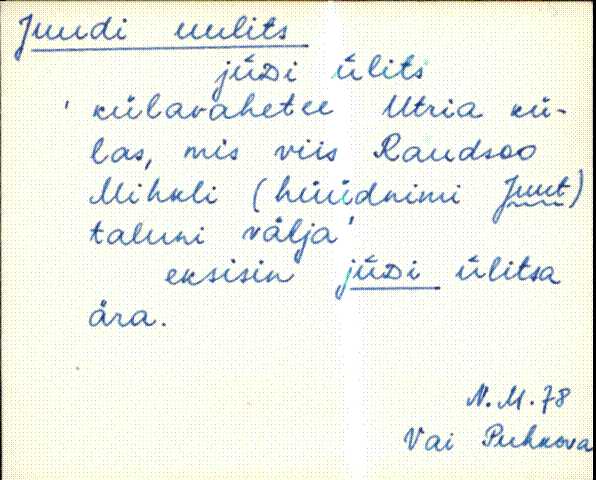 Juudi uulits
jüDi ülits
'külavahetee Utria kü-
las, mis viis Raudsoo
Mihkli (hüüdnimi Juut)
taluni välja'
eksisin jüDi ülitsa
ära.
N. M. 78
Vai Puhkova